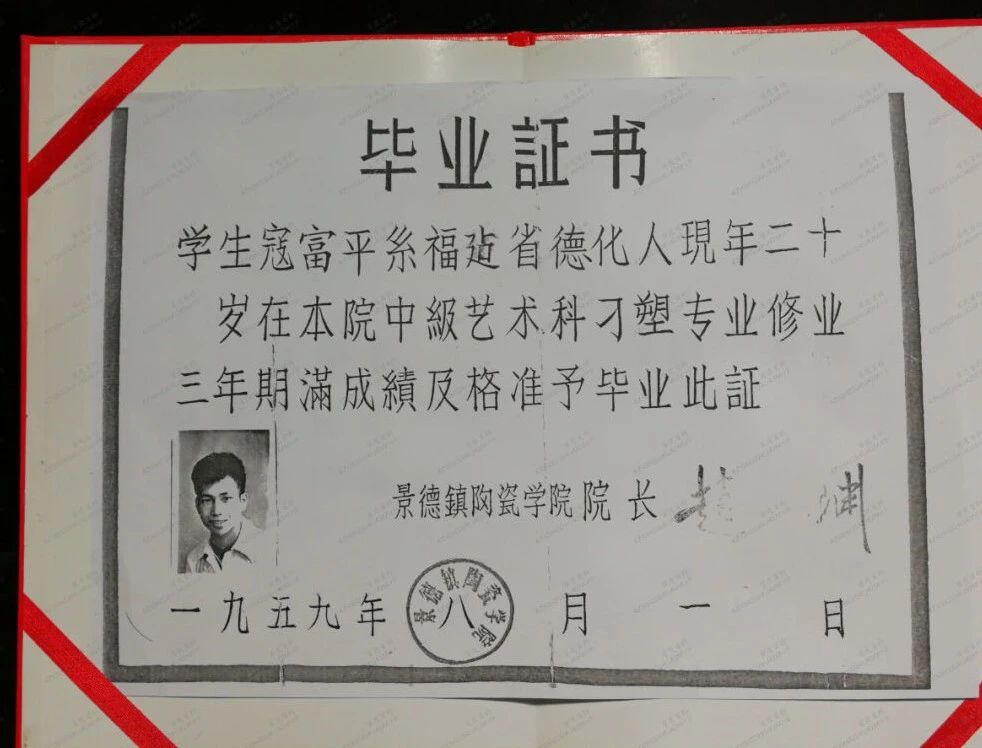 毕业証书
学生寇富平糸福建省德化人現年二十
岁在本院中級艺术科刁塑专业修业
三年期滿成績及格准予毕业此証
景德鎮陶瓷学院院长 趙 渊
一九五九年八月一日
景德鎮陶瓷学院